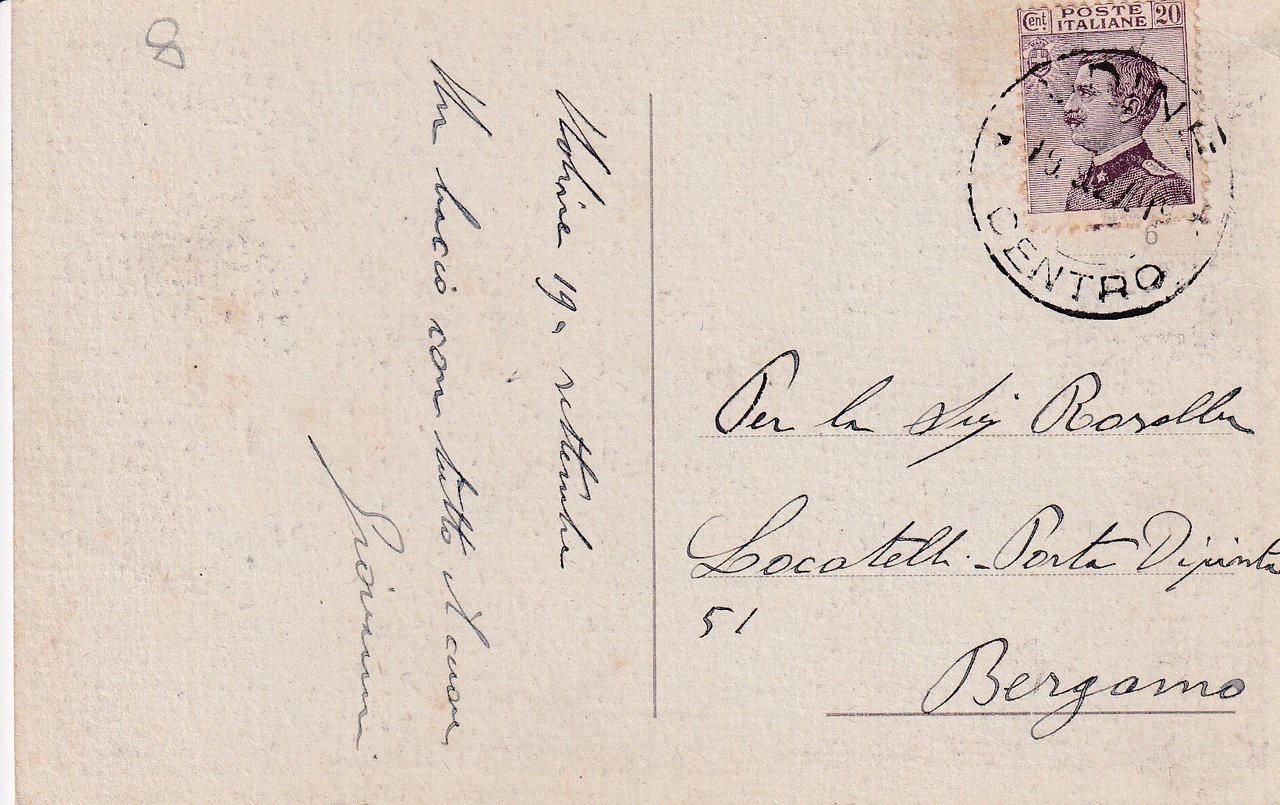 8
19. settembre
Un bacio con tutto il cuore
Giovanni
Cent. POSTE ITALIANE 20
CENTRO
6
Per la Sig Rosella
Locatelli - Porta Dipinta
51
Bergamo